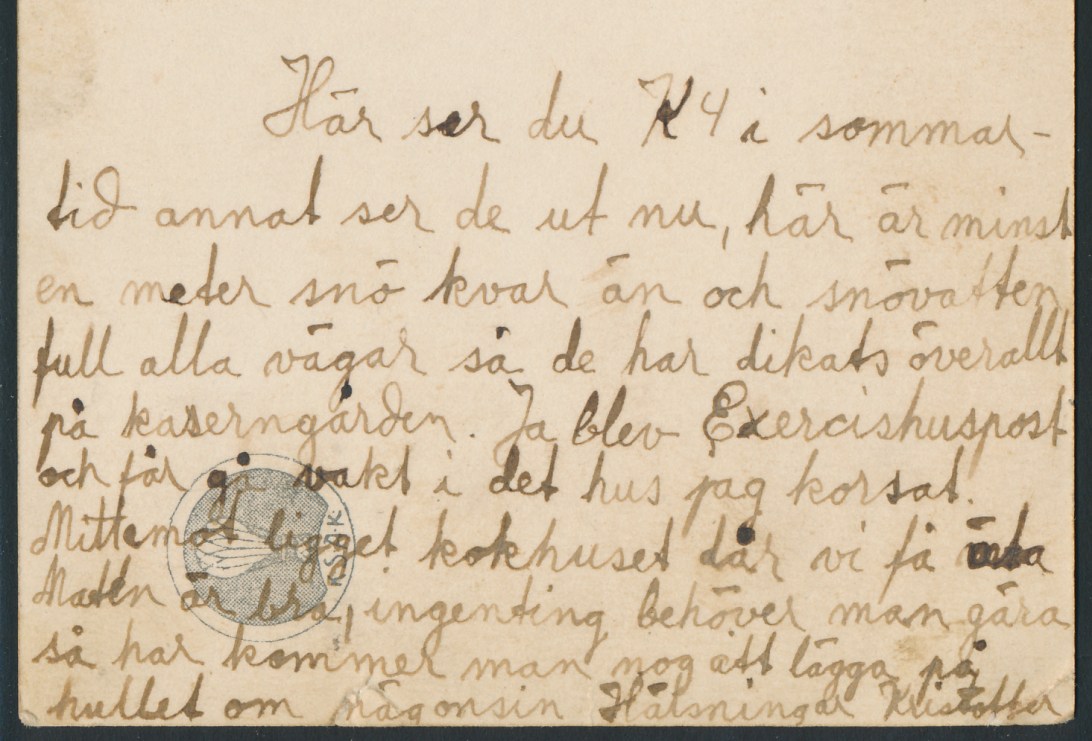 Här ser du K4 i sommar-
tid annat ser de ut nu, här är minst
en meter snö kvar än och snövatten
full alla vägar så de har dikats överallt
på kaserngården. Ja blev Exercishuspost
och får gå vakt i det hus jag korsat.
Mittemot ligget kokhuset där vi få äta
Maten är bra, ingenting behöver man gära
så har kommer man nog att lägga på
hullet om någonsin Hälsningar Kristoffer
KSAK